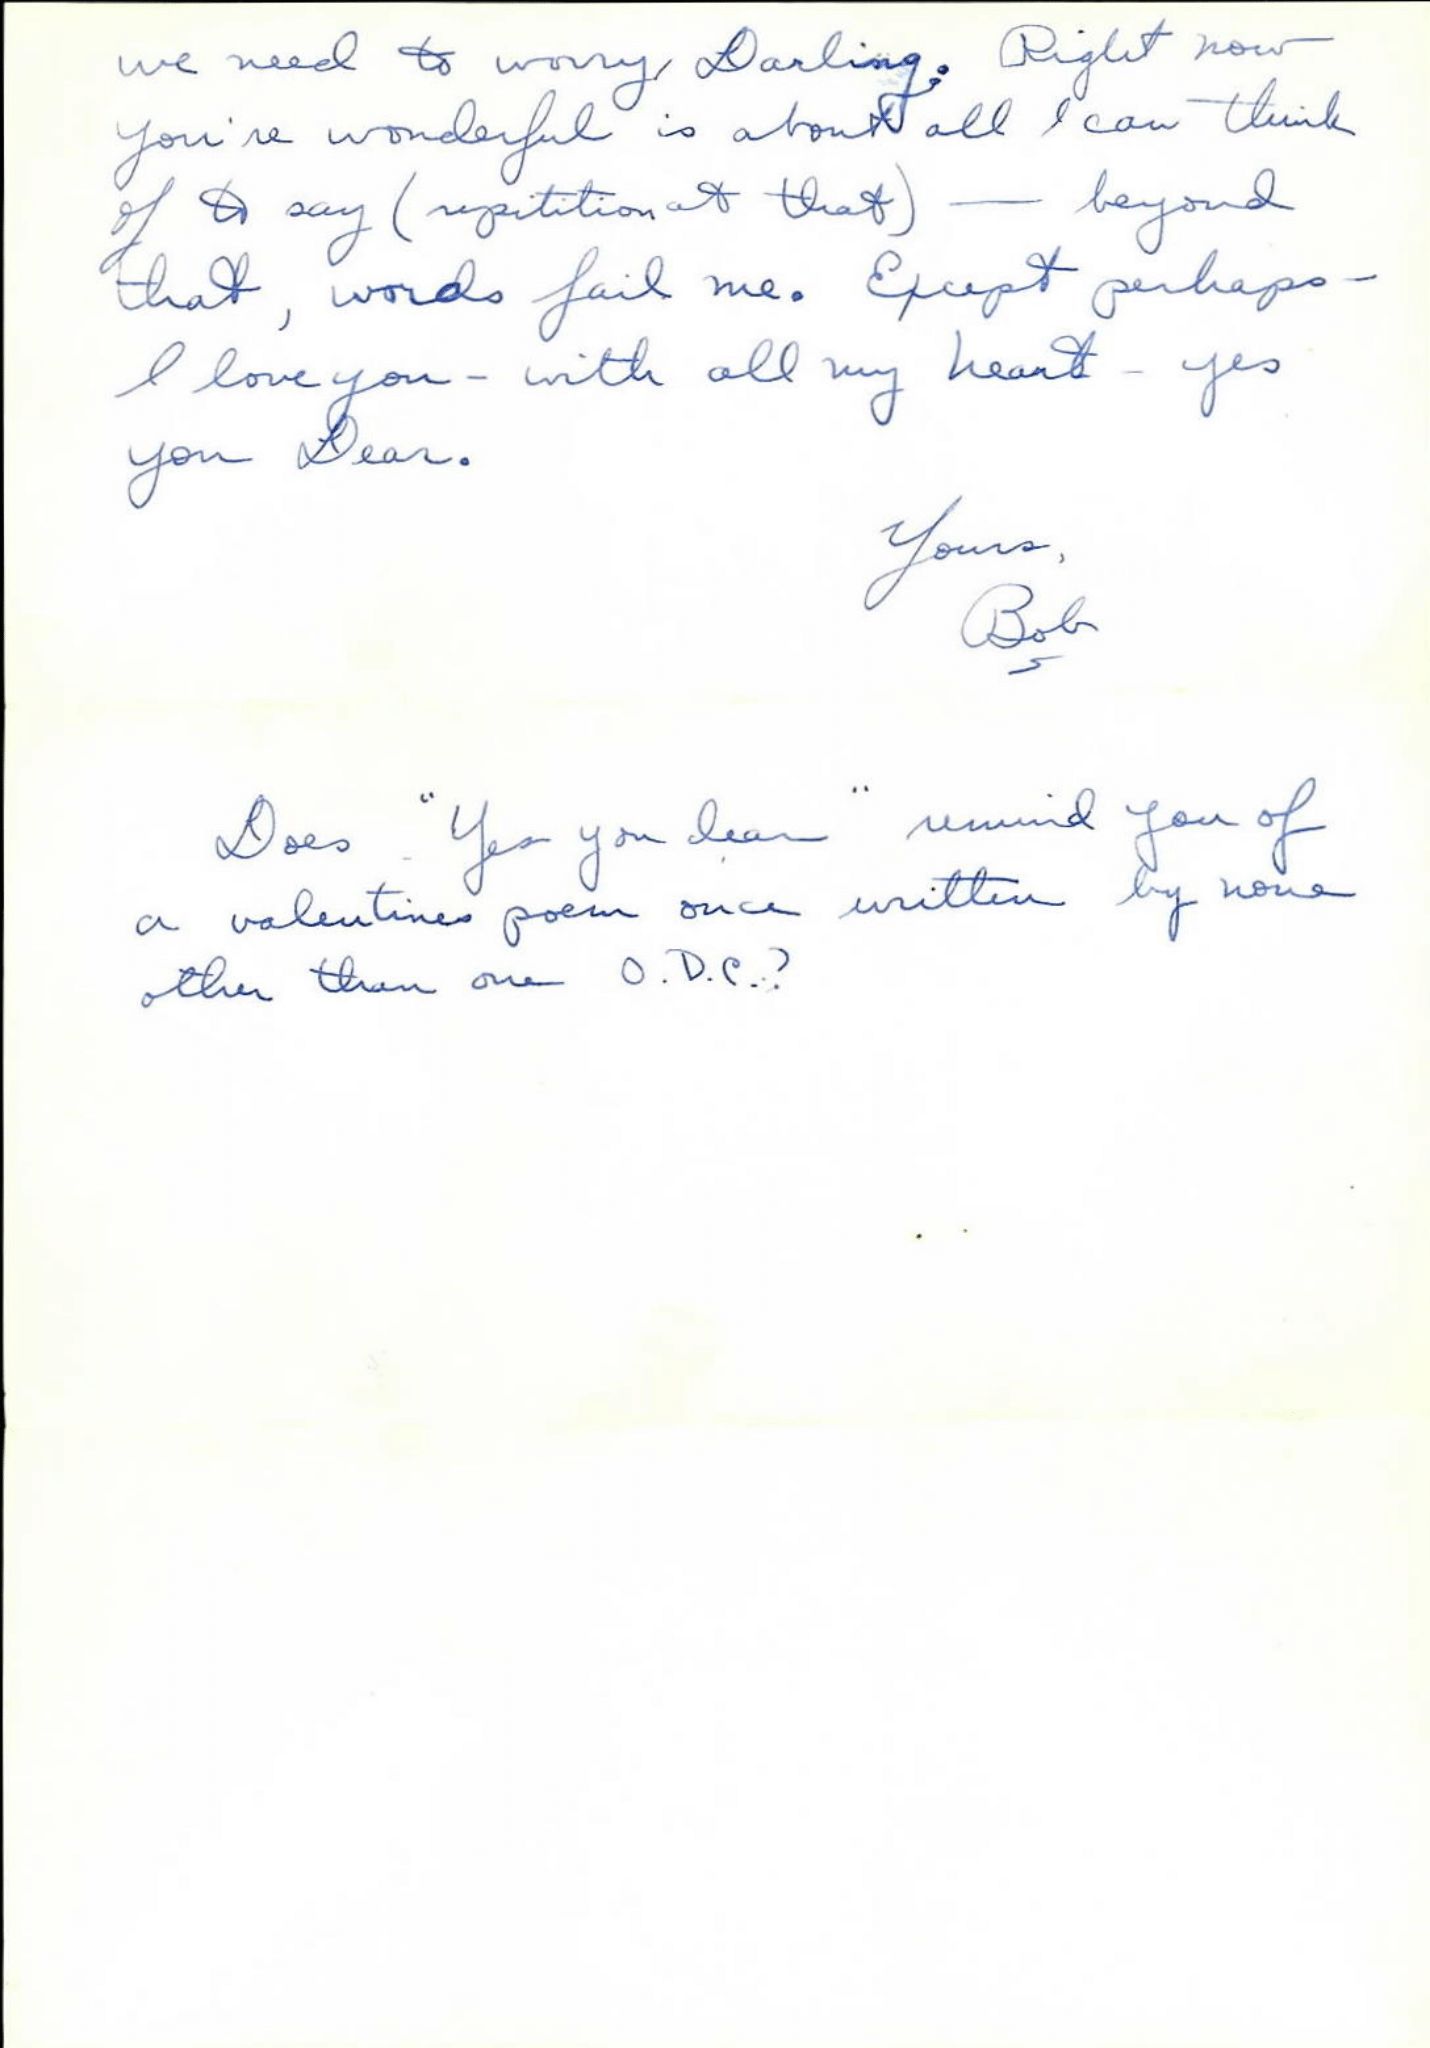 we need to worry, Darling. Right now
you're wonderful is about all I can think
of to say (repitition at that) — beyond
that, words fail me. Except perhaps -
I love you - with all my heart - yes
you Dear.
Yours,
Bob
Does "Yes you dear" remind you of
a valentines poem once written by none
other than one O.D.C.?